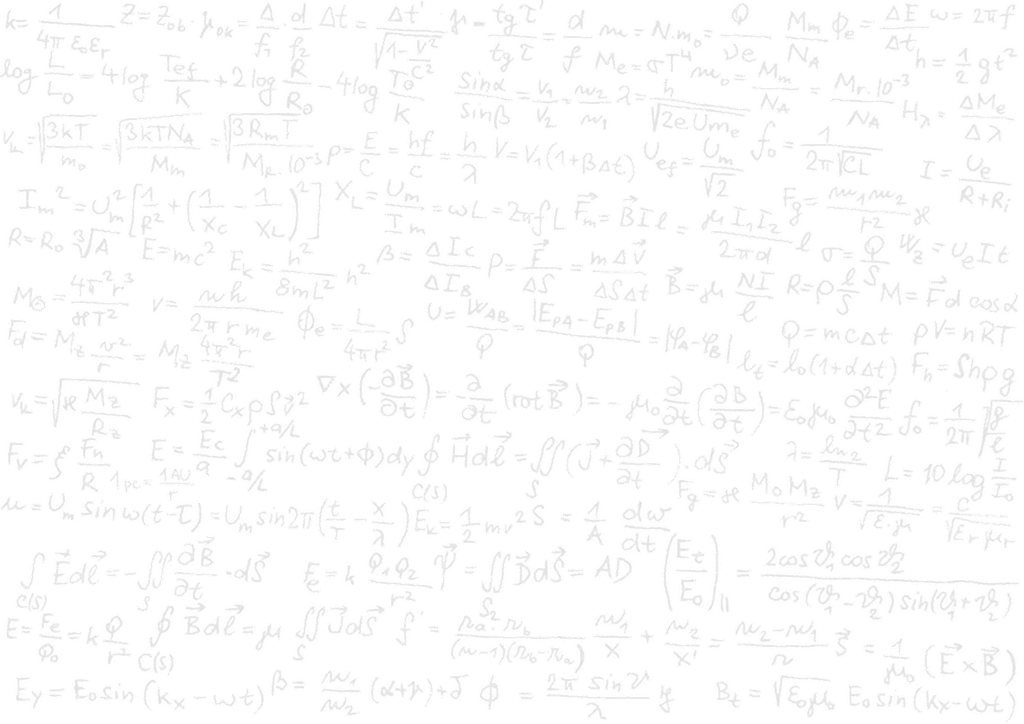 k = 1/(4π ε₀εᵣ) Z = Z_ob · γ_ok = Δ/f₁ · d/f₂ Δt = Δt'/√(1 - v²/c²) γ = tg τ'/tg τ = d/f m = N.m₀ = Q/νe M_m/N_A ϕ_e = ΔE/Δt ω = 2πf
log L/L₀ = 4 log T_ef/K + 2 log R/R_⊙ - 4 log T_⊙/K sinα/sinβ = v₁/v₂ = n₂/n₁ M_e = σT⁴ λ = h/√(2e.Um_e) m₀ = M_m/N_A = M_r.10⁻³/N_A h = 1/2 gt²
v_k = √(3kT/m₀) = √(3kTN_A/M_m) = √(3R_mT/(M_r.10⁻³)) p = E/c = hf/c = h/λ V = V₁(1+βΔt) U_ef = U_m/√2 f₀ = 1/(2π√CL) H_λ = ΔM_e/Δλ I = U_e/(R+R_i)
I_m² = U_m²[1/R² + (1/X_C - 1/X_L)²] X_L = U_m/I_m = ωL = 2πfL F⃗_m = B⃗Il = μI₁I₂/(2πd) l F_g = m₁m₂/r² ϰ
R = R₀ ∛A E = mc² E_k = h²/(8mL²) n² β = ΔI_C/ΔI_B p = F⃗/ΔS = mΔv⃗/(ΔSΔt) σ = Q/S W_z = U_eIt
M_⊙ = 4π²r³/(ϰT²) v = nh/(2πrm_e) ϕ_e = L/(4πr²) S B⃗ = μ NI/l R = ρ l/S M = F⃗d cosα
F_d = M_z v²/r = M_z 4π²r/T² U = W_AB/Q = |E_pA - E_pB|/Q = |φ_A - φ_B| Q = mcΔt pV = nRT
v_k = √(ϰ M_z/R_z) F_x = 1/2 C_xρSv⃗² ∇×(-∂B⃗/∂t) = -∂/∂t (rot B⃗) = -μ₀ ∂/∂t (∂B/∂t) = ε₀μ₀ ∂²E/∂t² l_t = l₀(1+αΔt) F_h = Shρg f₀ = 1/2π √(g/l)
F_v = ξ F_n/R 1pc = 1AU/r E = E_c/a ∫_{-a/L}^{+a/L} sin(ωt+ϕ)dy ∮_{C(S)} H⃗dl⃗ = ∬_S (J⃗ + ∂D⃗/∂t) · dS⃗ λ = ln2/T L = 10 log I/I₀
u = U_m sin ω(t-τ) = U_m sin2π(t/T - x/λ) E_k = 1/2 mv² S = 1/A dω/dt F_g = ϰ M₀M_z/r² v = 1/√(ε.μ) = c/√(εᵣμᵣ)
∫_{C(S)} E⃗dl⃗ = -∬_S ∂B⃗/∂t · dS⃗ F_e = k Q₁Q₂/r² Ψ⃗ = ∬_S D⃗dS⃗ = AD (E_t/E₀)_∥ = 2cosϑ₁cosϑ₂/(cos(ϑ₁-ϑ₂)sin(ϑ₁+ϑ₂))
E = F_e/Q₀ = k Q/r² ∮_{C(S)} B⃗dl⃗ = μ ∬_S J⃗dS⃗ f' = r_a·r_b/((n-1)(r_b-r_a)) n₁/x + n₂/x' = (n₂-n₁)/r S⃗ = 1/μ₀ (E⃗×B⃗)
E_y = E₀sin(k_x - ωt) β = n₁/n₂ (α+γ)+δ ϕ = 2π sinϑ/λ y B_t = √(ε₀μ₀) E₀sin(kx-ωt)